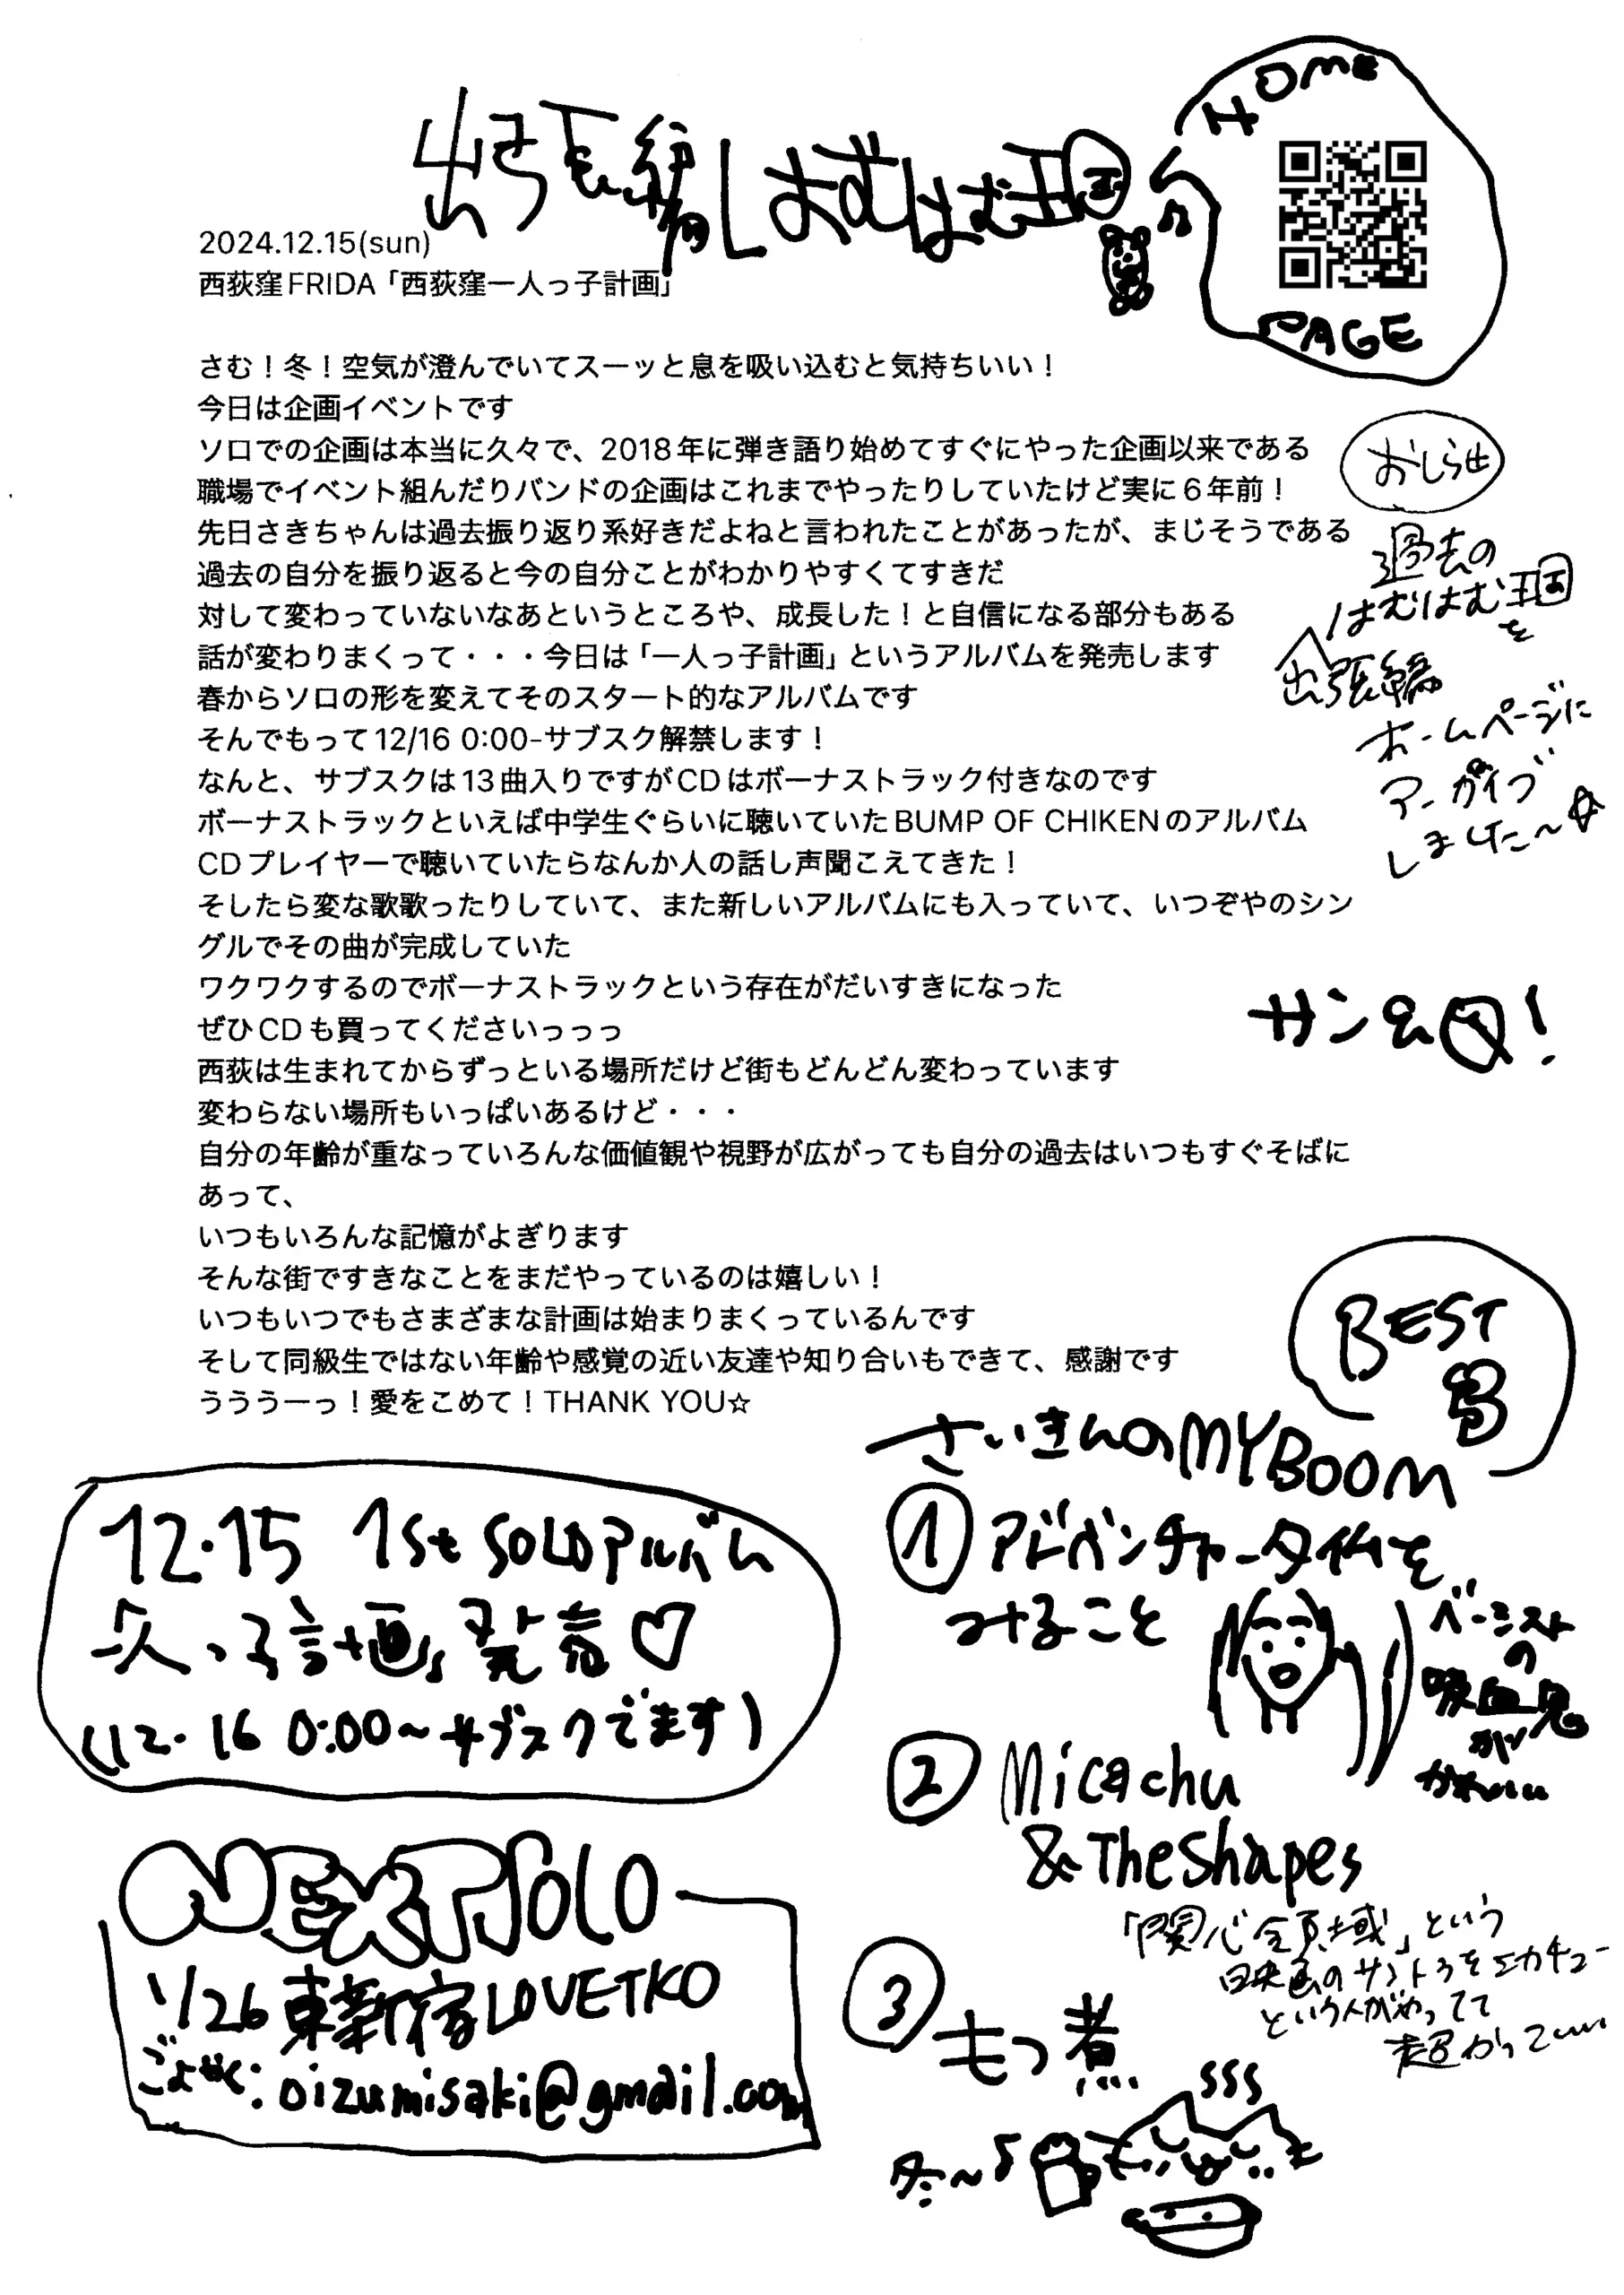 出張編しおむはむ王国
HOME
PAGE
2024.12.15(sun)
西荻窪FRIDA「西荻窪一人っ子計画」
さむ！冬！空気が澄んでいてスーッと息を吸い込むと気持ちいい！
今日は企画イベントです
ソロでの企画は本当に久々で、2018年に弾き語り始めてすぐにやった企画以来である
職場でイベント組んだりバンドの企画はこれまでやったりしていたけど実に6年前！
先日さきちゃんは過去振り返り系好きだよねと言われたことがあったが、まじそうである
過去の自分を振り返ると今の自分ことがわかりやすくてすきだ
対して変わっていないなあというところや、成長した！と自信になる部分もある
話が変わりまくって・・・今日は「一人っ子計画」というアルバムを発売します
春からソロの形を変えてそのスタート的なアルバムです
そんでもって12/16 0:00-サブスク解禁します！
なんと、サブスクは13曲入りですがCDはボーナストラック付きなのです
ボーナストラックといえば中学生ぐらいに聴いていたBUMP OF CHIKENのアルバム
CDプレイヤーで聴いていたらなんか人の話し声聞こえてきた！
そしたら変な歌歌ったりしていて、また新しいアルバムにも入っていて、いつぞやのシン
グルでその曲が完成していた
ワクワクするのでボーナストラックという存在がだいすきになった
ぜひCDも買ってくださいっっっ
西荻は生まれてからずっといる場所だけど街もどんどん変わっています
変わらない場所もいっぱいあるけど・・・
自分の年齢が重なっていろんな価値観や視野が広がっても自分の過去はいつもすぐそばに
あって、
いつもいろんな記憶がよぎります
そんな街ですきなことをまだやっているのは嬉しい！
いつもいつでもさまざまな計画は始まりまくっているんです
そして同級生ではない年齢や感覚の近い友達や知り合いもできて、感謝です
うううーっ！愛をこめて！THANK YOU☆
おしらせ
過去の
はむはむ王国
を
出張編
ホームページに
アーカイブ
しました〜☆
サンQ！
BEST
3
さいきんのMYBOOM
① アドベンチャータイムを
みること
ベーシスト
の
吸血鬼
が
かわいい
② Micachu
& The Shapes
「関心領域」という
映画のサントラをミカチュー
という人がやってて
超かっこいい
③ もつ煮
冬〜
12.15 1st SOLOアルバム
一人っ子計画」発売♡
(12.16 0:00〜サブスクでます)
NEXT SOLO
1/26 東新宿LOVETKO
ごよやく：oizumisaki@gmail.com